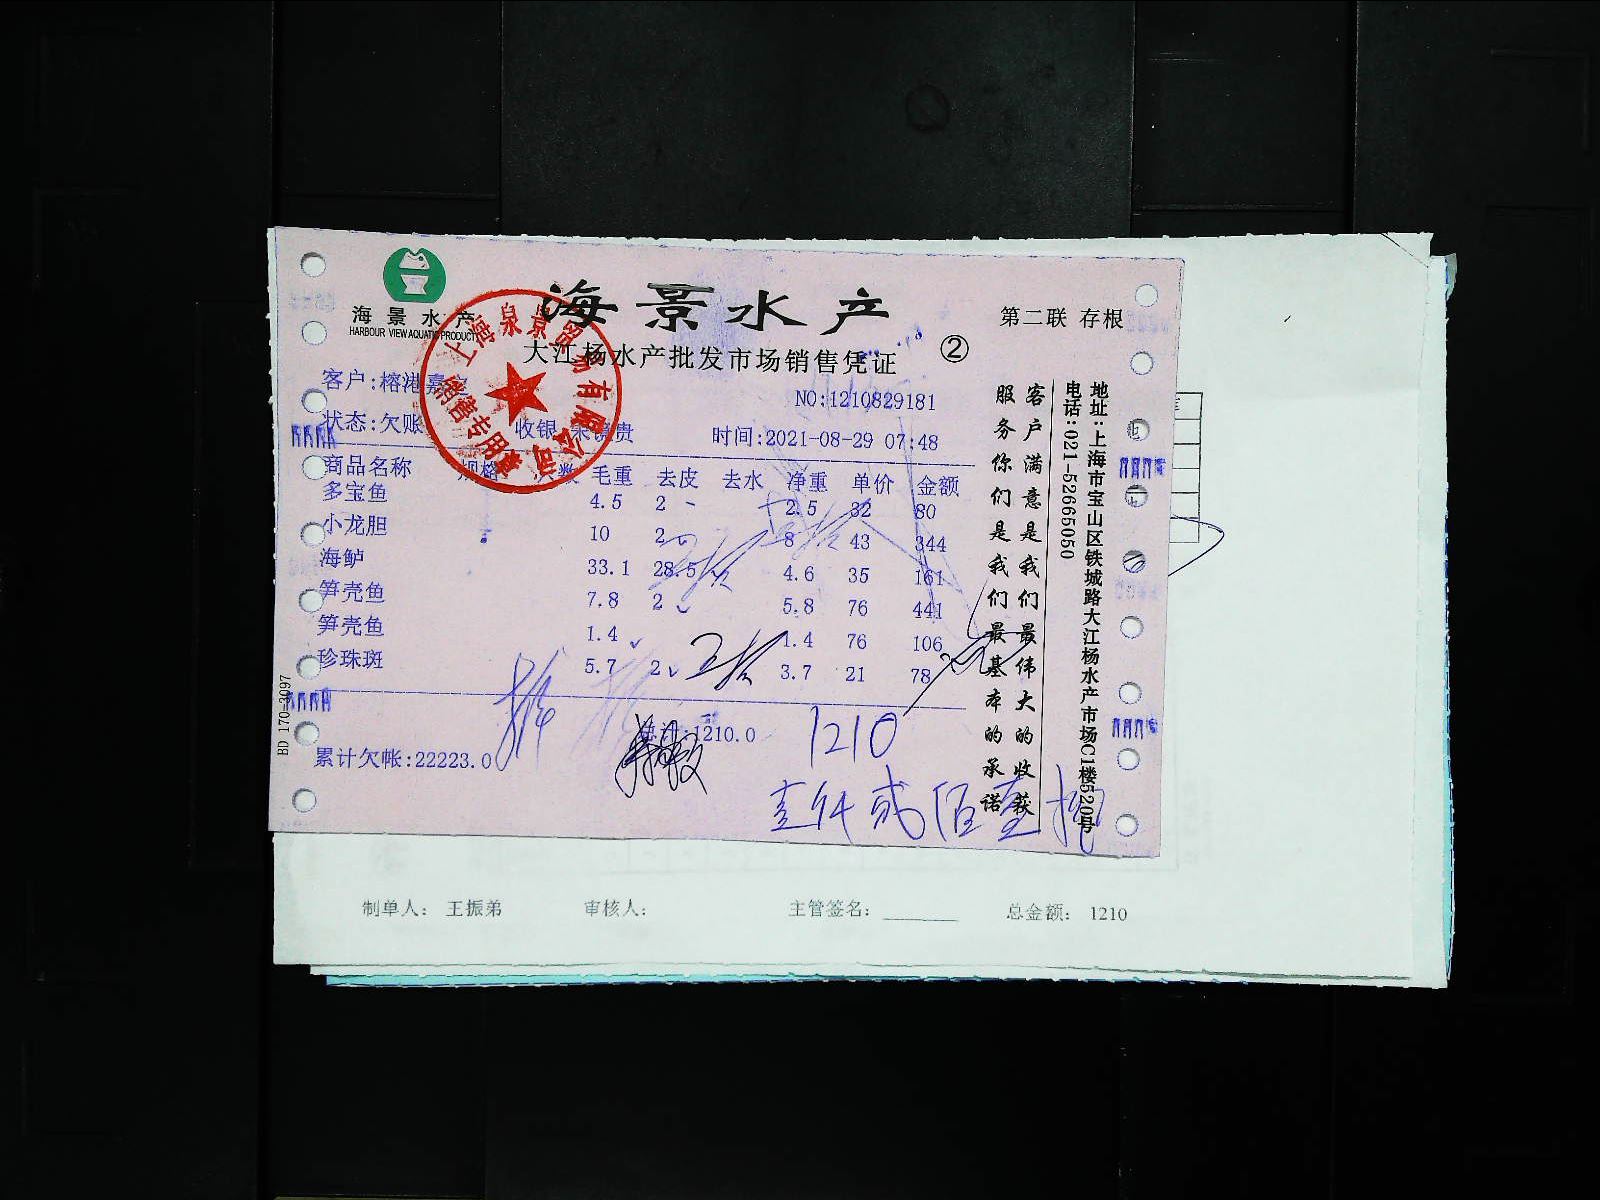 海景水产
HARBOUR VIEW AQUATIC PRODUCTS
海景水产
大江杨水产批发市场销售凭证
②
第二联 存根
上海泉景贸易有限公司
销售专用章
客户:榕港嘉
NO:1210829181
状态:欠账
收银
贵
时间:2021-08-29 07:48
商品名称 规格 毛重 去皮 去水 净重 单价 金额
多宝鱼 4.5 2 2.5 32 80
小龙胆 10 2 8 43 344
海鲈 33.1 28.5 4.6 35 161
笋壳鱼 7.8 2 5.8 76 441
笋壳鱼 1.4 1.4 76 106
珍珠斑 5.7 2 3.7 21 78
总计:1210.0
1210
累计欠帐:22223.0
壹仟贰佰壹拾
客户满意是我们最伟大的收获
服务你们是我们最基本的承诺
地址:上海市宝山区铁城路大江杨水产市场C1楼520号
电话:021-52665050
BD 170-3097
制单人: 王振弟 审核人: 主管签名: 总金额: 1210